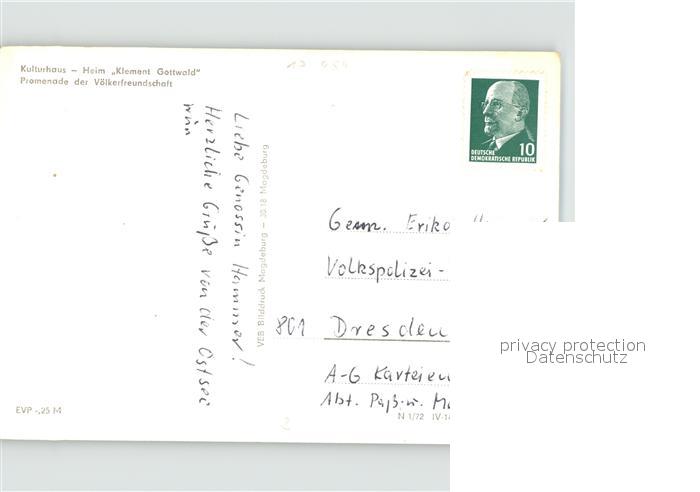 Kulturhaus – Heim „Klement Gottwald"
Promenade der Völkerfreundschaft
10
DEUTSCHE
DEMOKRATISCHE REPUBLIK
Liebe Genossin Hammer!
Herzliche Grüße von der Ostsee
VEB Bilddruck Magdeburg – 3018 Magdeburg
Genn. Erika
Volkspolizei-
801 Dresden
A-G Karteien
Abt. Paß-u. M
EVP -,25 M
N 1/72 IV-14
privacy protection
Datenschutz